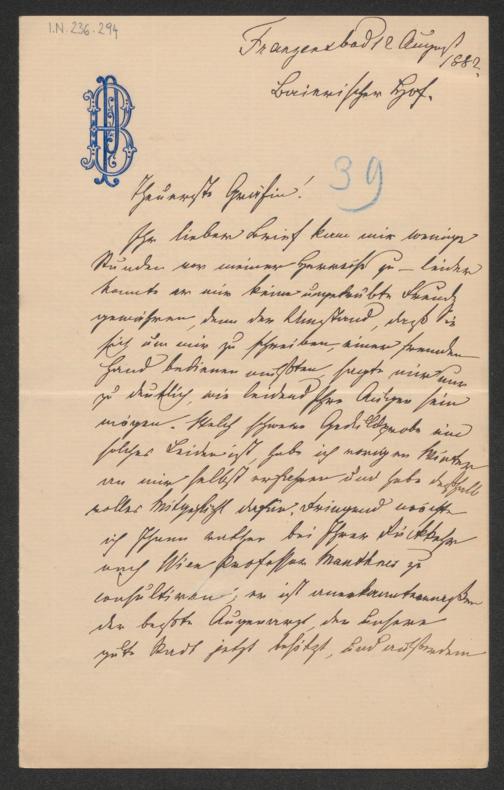 I.N. 236.294
Franzensbad 12 August
1882.
Baierischer Hof.
39
Theuerste Gräfin!
Ihr lieber Brief kam mir wenige
Stunden vor meiner Herreise zu – leider
konnte er mir keine ungetrübte Freude
gewähren, denn der Umstand, daß Sie
sich um mir zu schreiben, einer fremden
Hand bedienen mußten, sagte mir nur
zu deutlich, wie leidend Ihre Augen sein
mögen. Welch schwere Geduldprobe ein
solches Leiden ist, habe ich vorigen Winter
an mir selbst erfahren und habe deßhalb
volles Mitgefühl dafür. Dringend möchte
ich Ihnen rathen bei Ihrer Rückkehr
nach Wien Professor Mauthner zu
consultiren; er ist anerkanntermaßen
der beßte Augenarzt, den unsere
gute Stadt jetzt besitzt, und außerdem